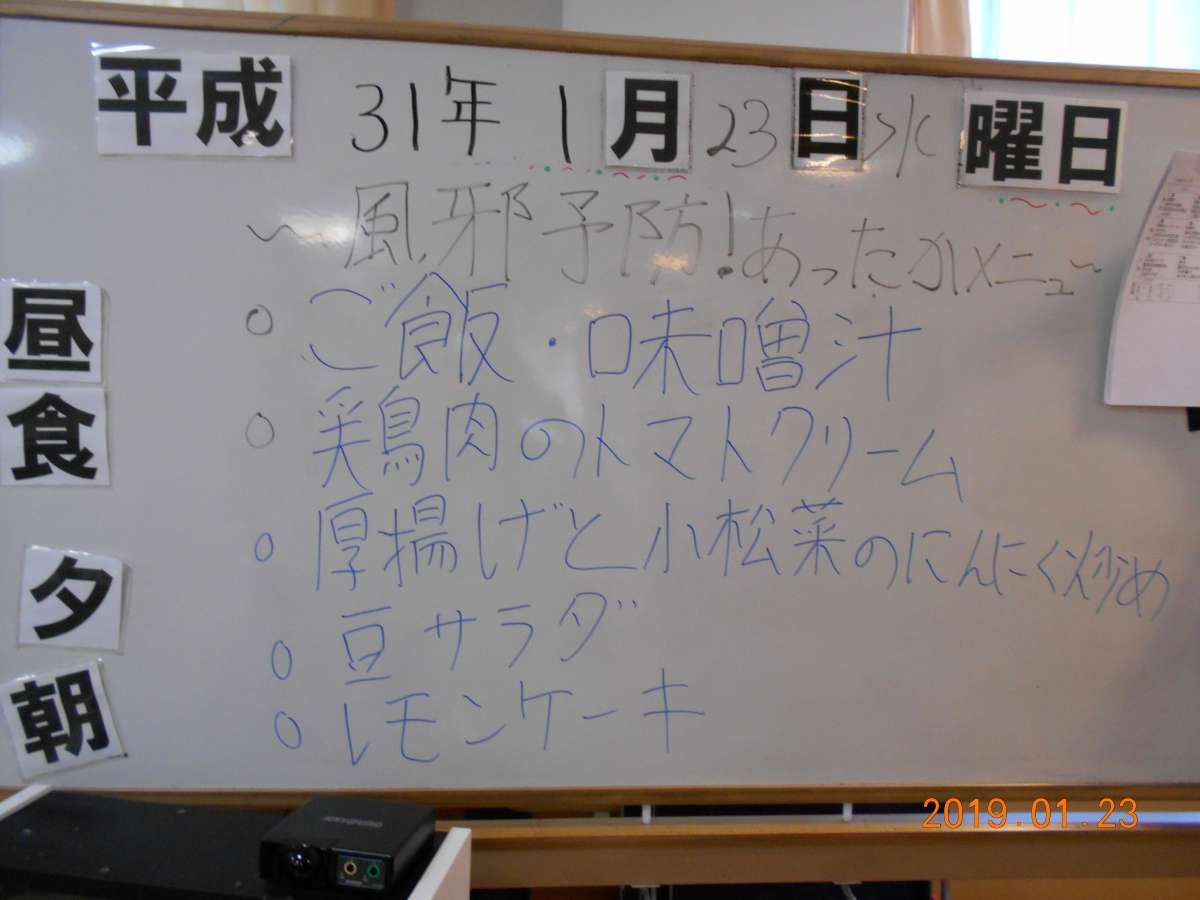 平成 31年 1月 23日 水曜日
~風邪予防!あったかメニュー~
昼食
○ ご飯・味噌汁
○ 鶏肉のトマトクリーム
○ 厚揚げと小松菜のにんにく炒め
○ 豆サラダ
○ レモンケーキ
夕
朝
2019.01.23